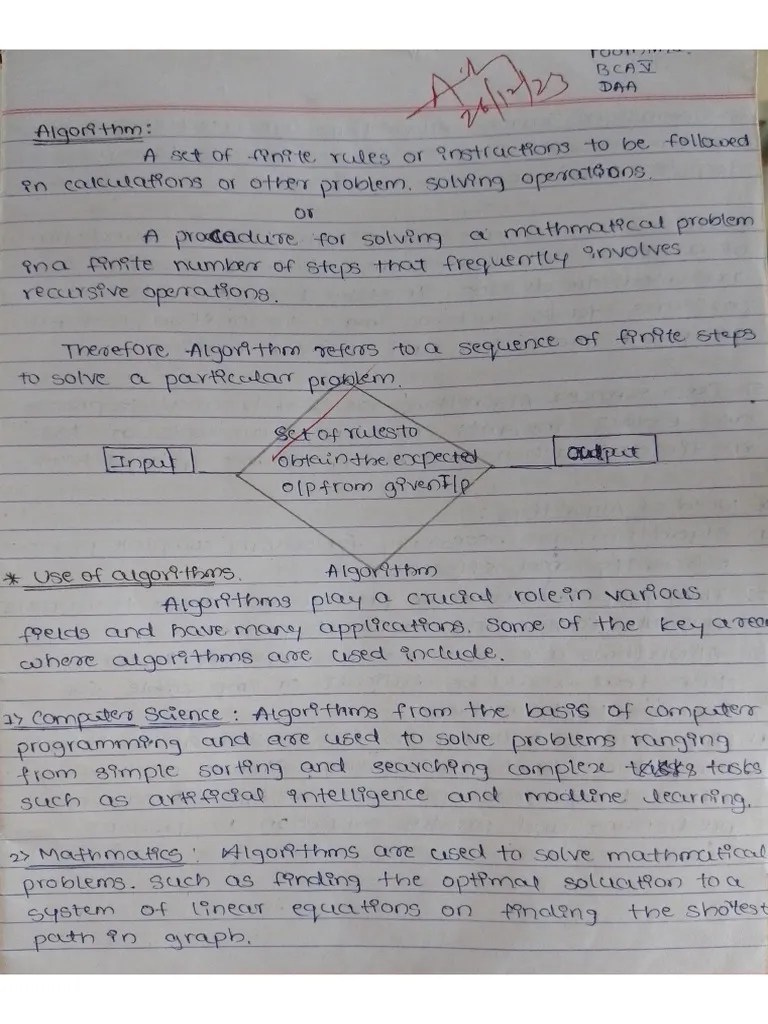 BCA V
DAA
26/12/23
Algorithm:
A set of finite rules or instructions to be followed
in calculations or other problem. solving operations.
or
A procedure for solving a mathmatical problem
in a finite number of steps that frequently involves
recursive operations.
Therefore Algorithm refers to a sequence of finite steps
to solve a particular problem.
Set of rules to
Input obtain the expected Output
o/p from given I/p
* Use of algorithms. Algorithm
Algorithms play a crucial role in various
fields and have many applications. Some of the key area
where algorithms are used include.
1> Computer Science : Algorithms from the basis of computer
programming and are used to solve problems ranging
from simple sorting and searching complex tasks
such as artificial intelligence and learning.
2> Mathmatics : Algorithms are used to solve mathmatical
problems. such as finding the optimal soluation to a
system of linear equations on finding the shotest
path in graph.